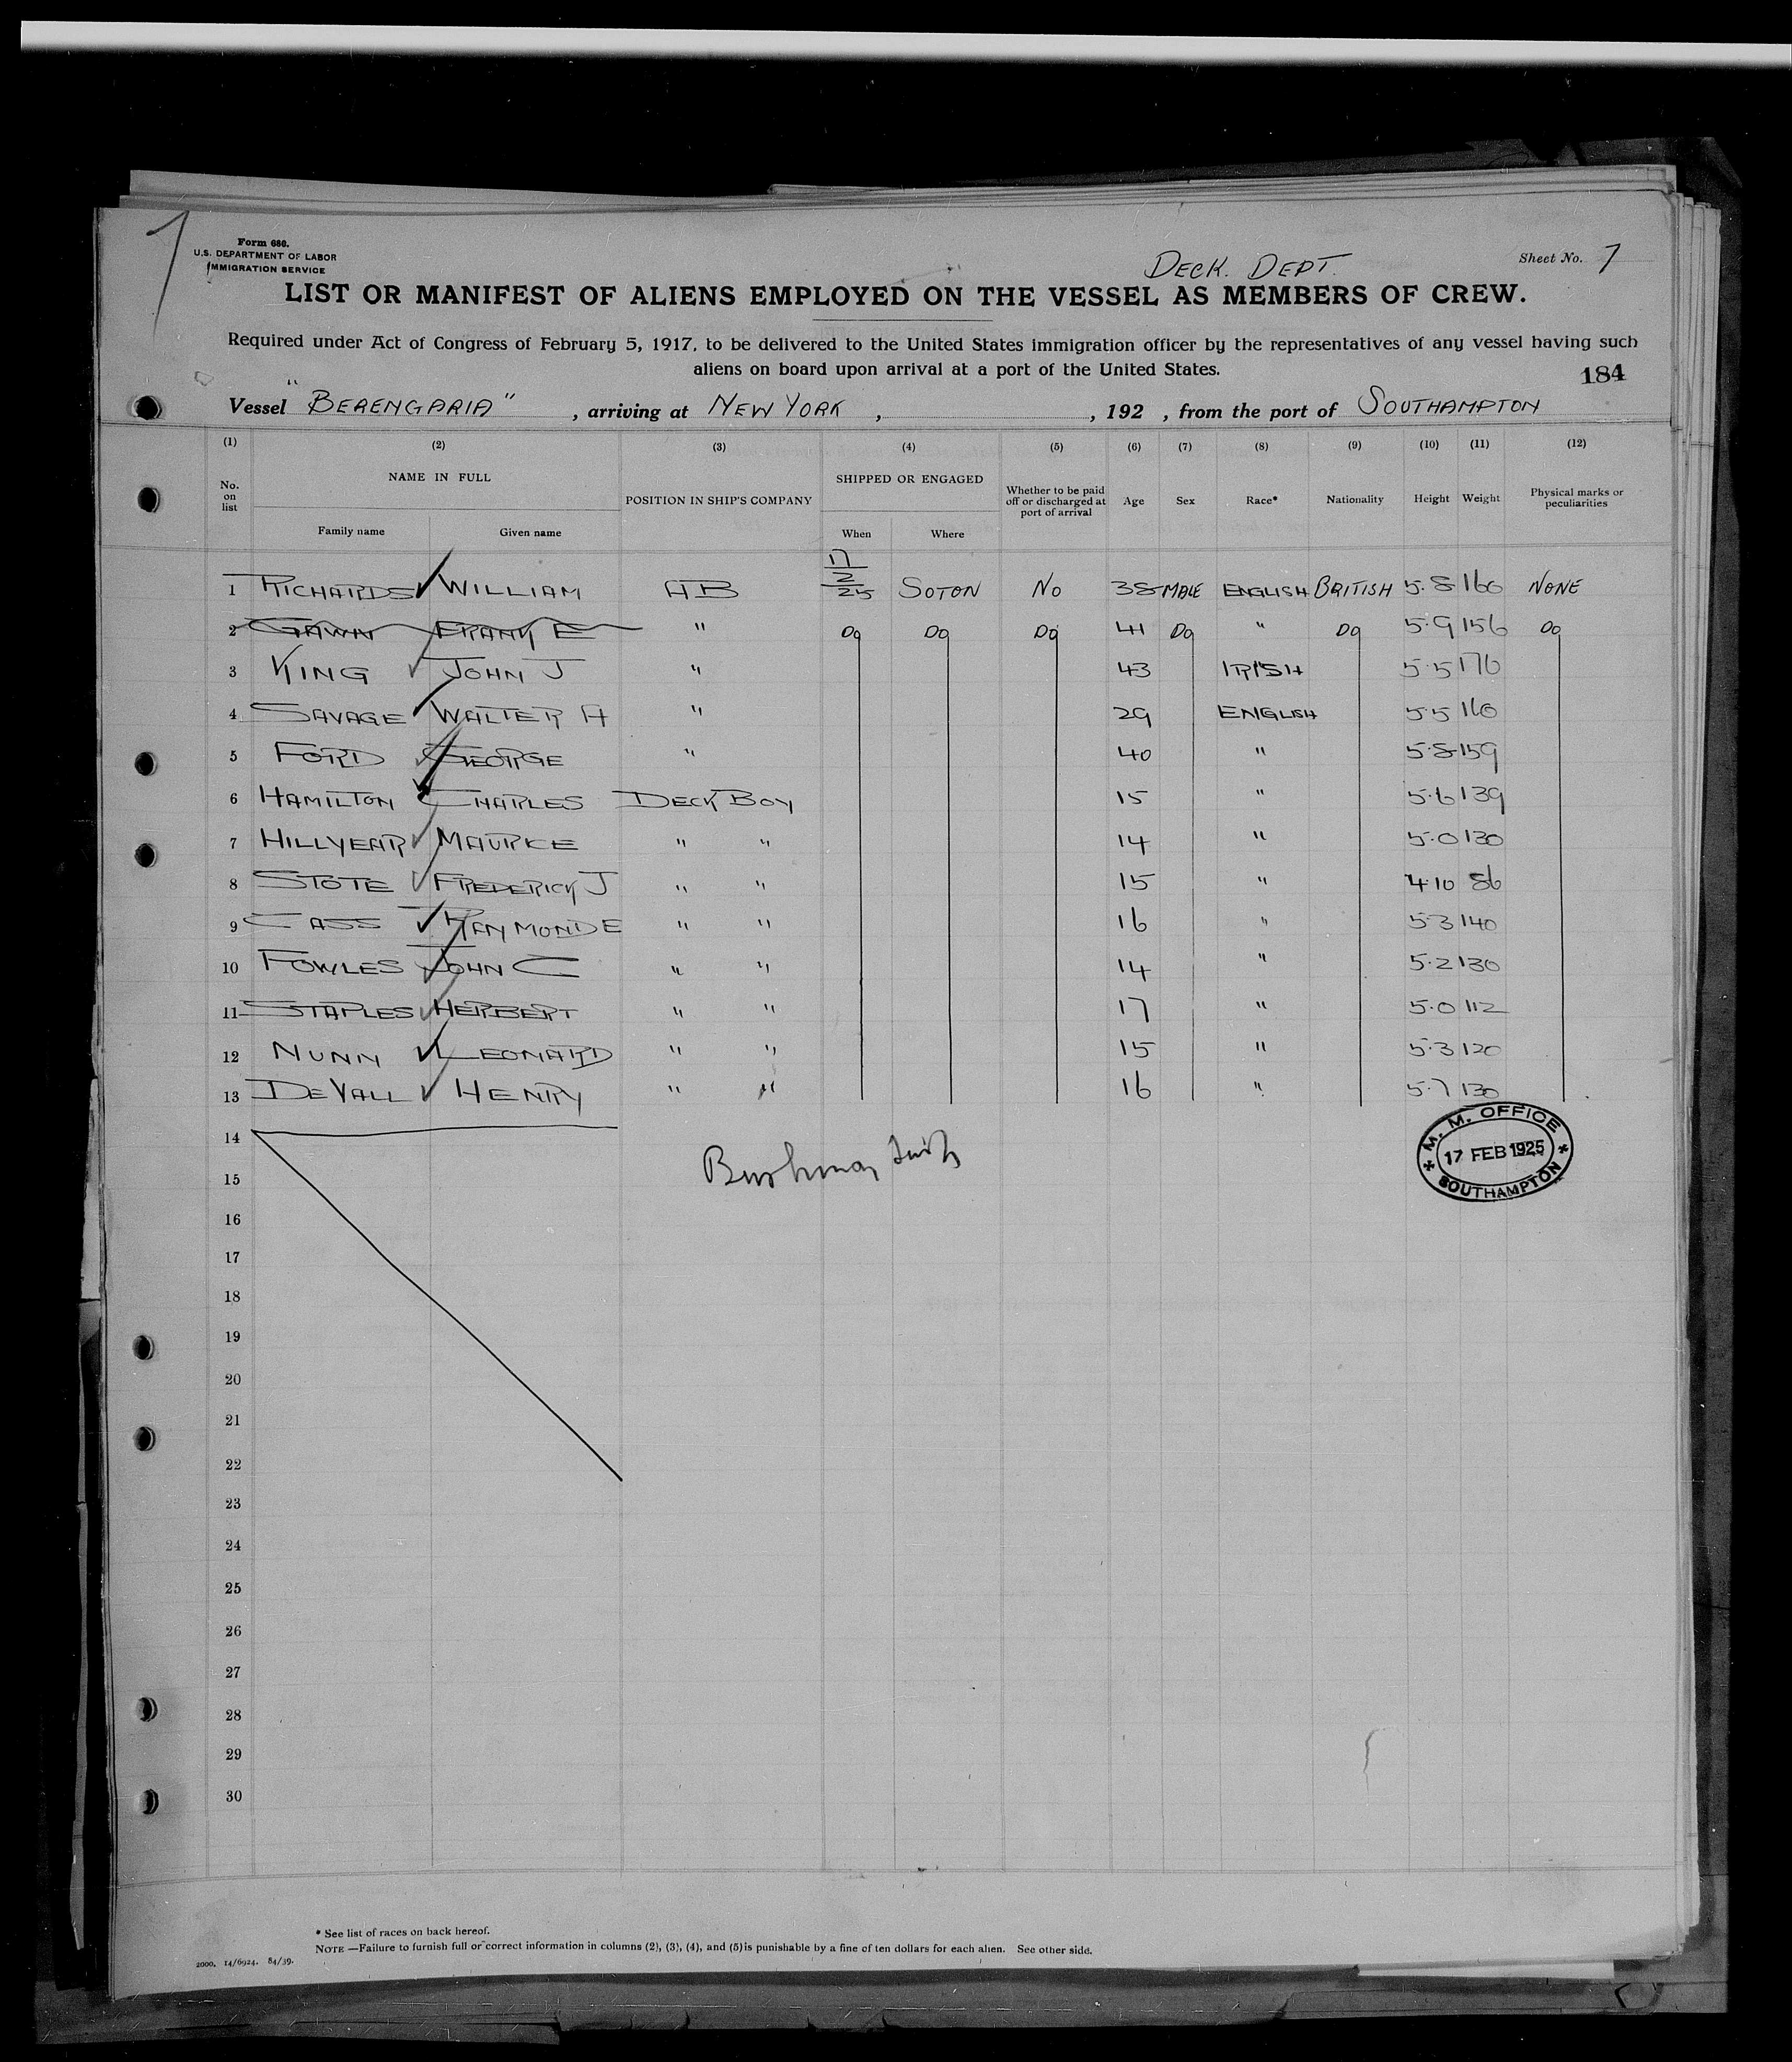 Form 686.
U.S. DEPARTMENT OF LABOR
IMMIGRATION SERVICE
DECK. DEPT.
Sheet No. 7
LIST OR MANIFEST OF ALIENS EMPLOYED ON THE VESSEL AS MEMBERS OF CREW.
Required under Act of Congress of February 5, 1917, to be delivered to the United States immigration officer by the representatives of any vessel having such
aliens on board upon arrival at a port of the United States.
184
Vessel "BERENGARIA", arriving at NEW YORK, , 192 , from the port of SOUTHAMPTON
(1) (2) (3) (4) (5) (6) (7) (8) (9) (10) (11) (12)
No. on list NAME IN FULL POSITION IN SHIP'S COMPANY SHIPPED OR ENGAGED Whether to be paid off or discharged at port of arrival Age Sex Race* Nationality Height Weight Physical marks or peculiarities
Family name Given name When Where
1 RICHARDS WILLIAM AB 17/2/25 SOTON NO 38 MALE ENGLISH BRITISH 5.8 160 NONE
2 GAWN FRANK E " DO DO DO 41 DO " DO 5.9 156 DO
3 KING JOHN J " 43 IRISH 5.5 170
4 SAVAGE WALTER A " 29 ENGLISH 5.5 160
5 FORD GEORGE " 40 " 5.8 159
6 HAMILTON CHARLES DECK BOY 15 " 5.6 139
7 HILLYEAR MAURICE " " 14 " 5.0 130
8 STOTE FREDERICK J " " 15 " 4.10 86
9 CASS RAYMOND E " " 16 " 5.3 140
10 FOWLES JOHN C " " 14 " 5.2 130
11 STAPLES HERBERT " " 17 " 5.0 112
12 NUNN LEONARD " " 15 " 5.3 120
13 DEVALL HENRY " " 16 " 5.7 130
M. M. OFFICE
17 FEB 1925
SOUTHAMPTON
14
15
16
17
18
19
20
21
22
23
24
25
26
27
28
29
30
* See list of races on back hereof.
NOTE —Failure to furnish full or correct information in columns (2), (3), (4), and (5) is punishable by a fine of ten dollars for each alien. See other side.
2000. 14/6924. 84/39.